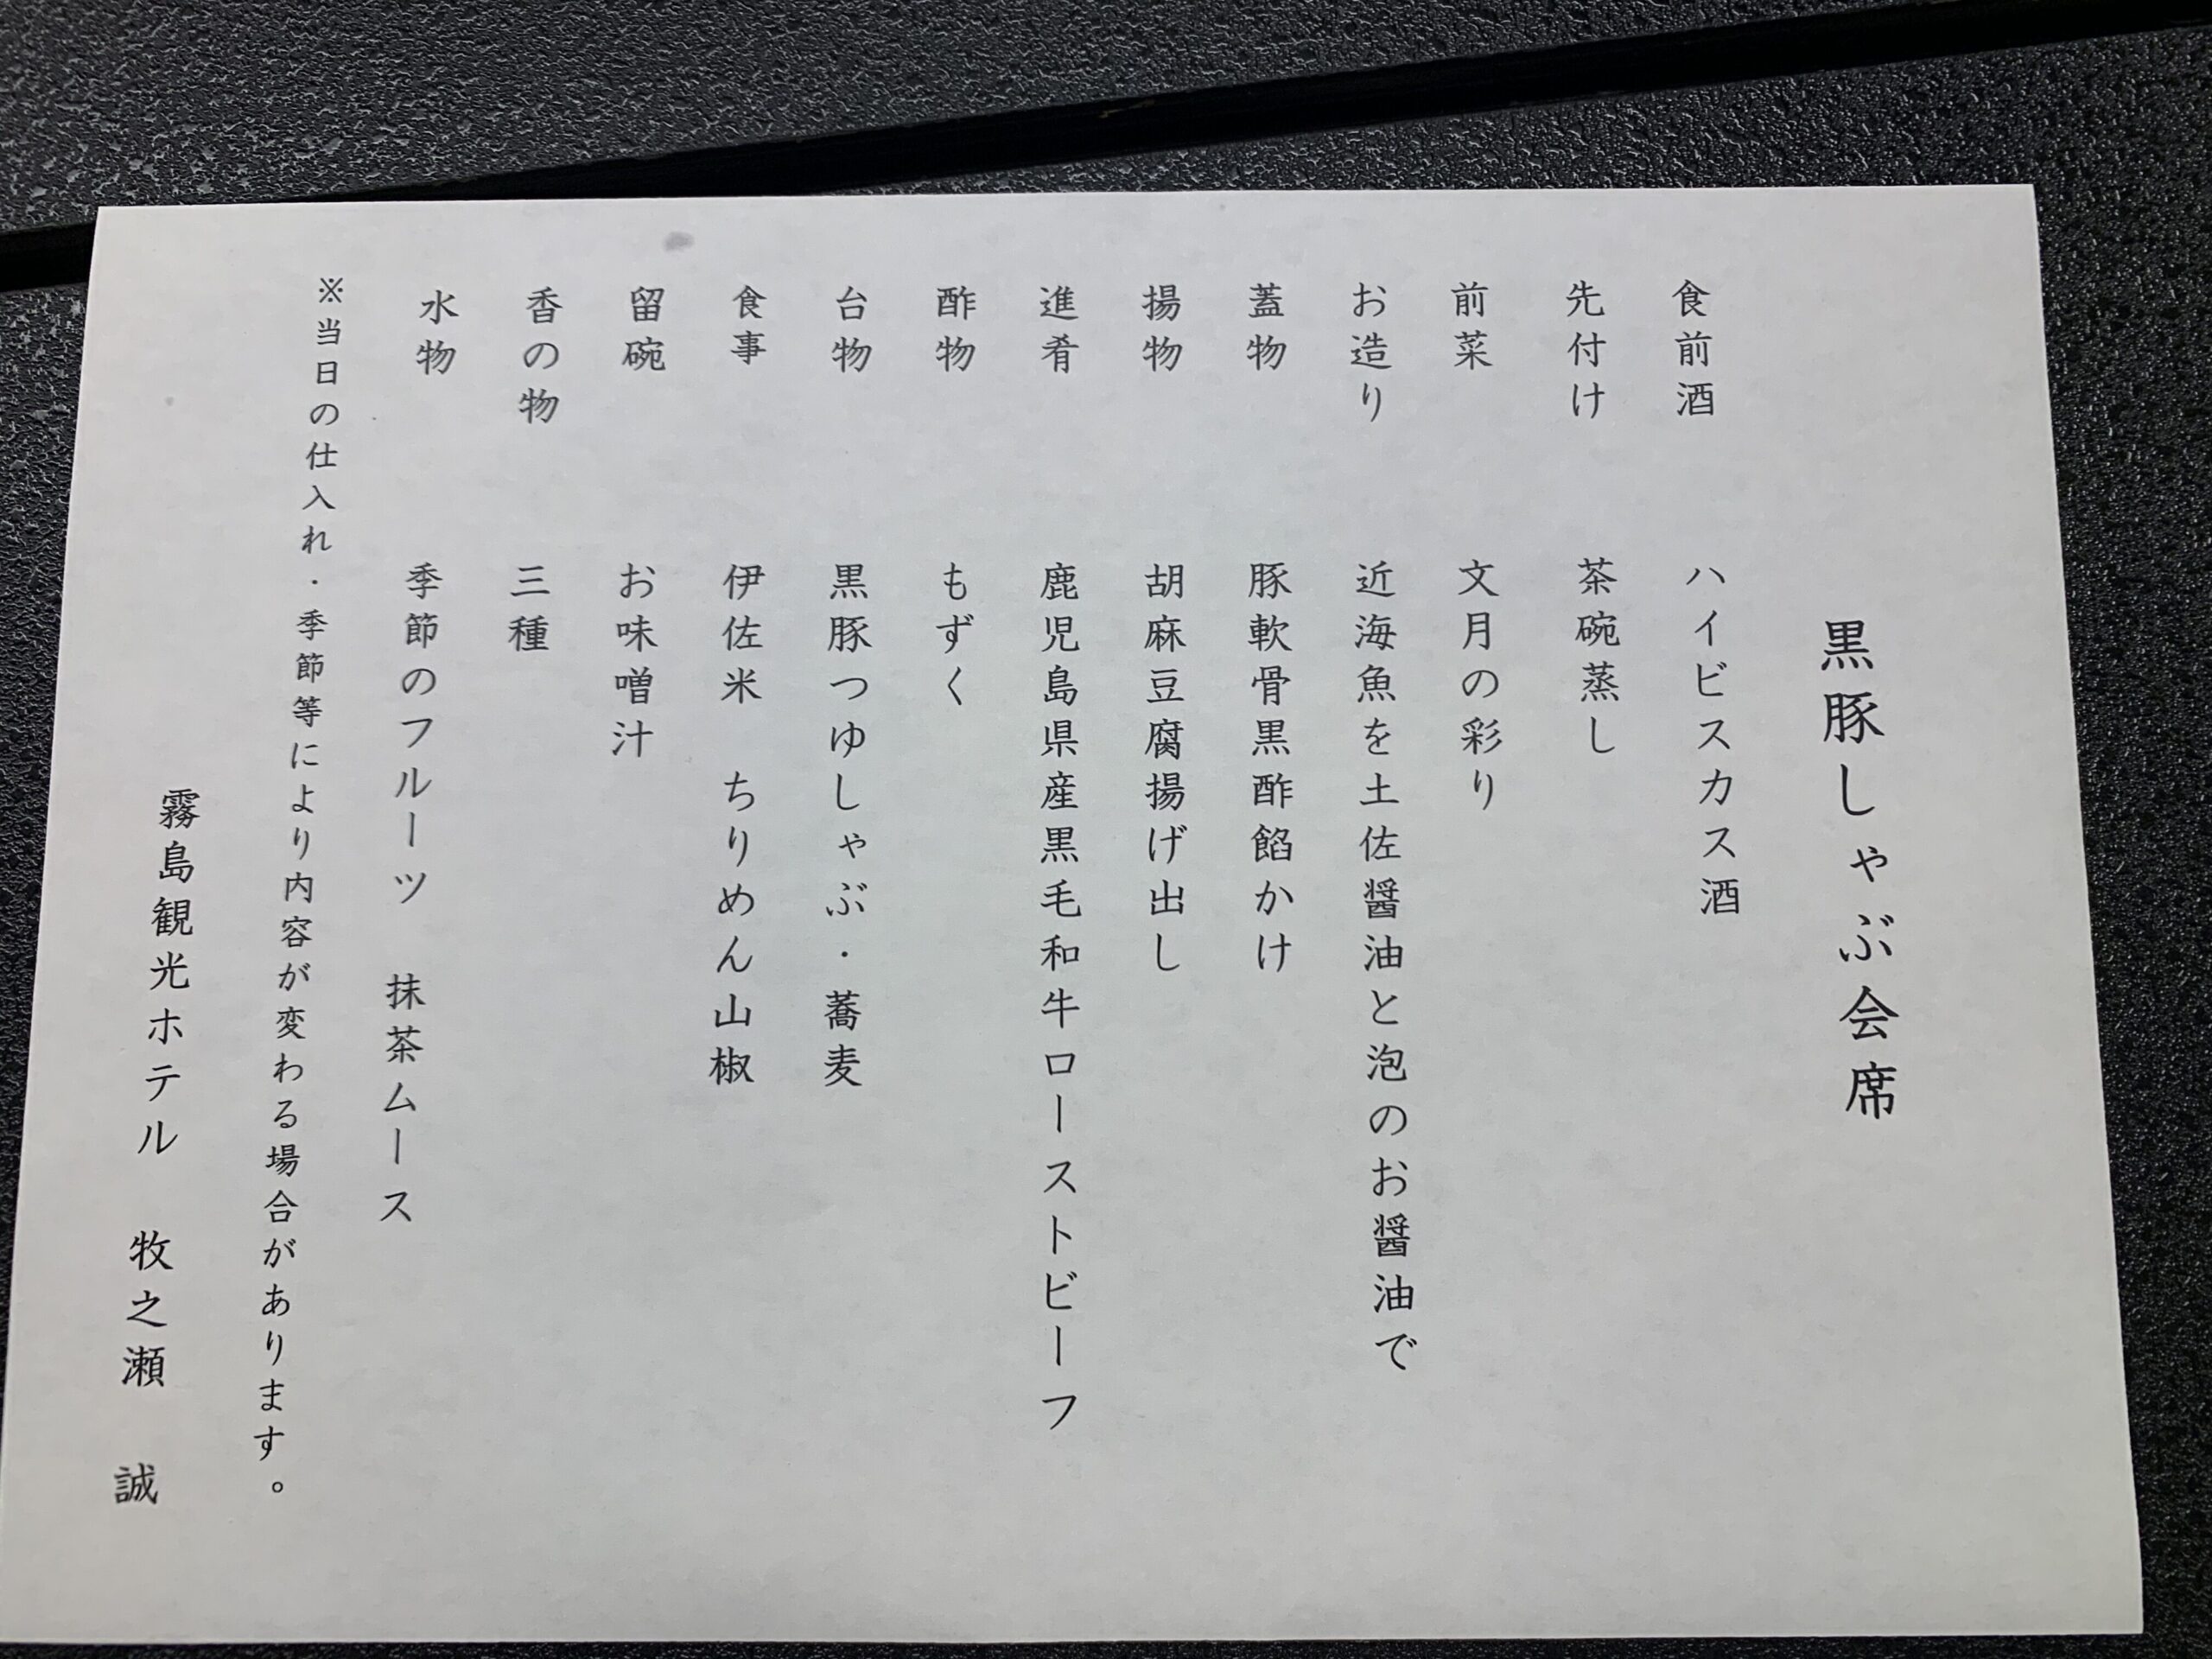 黒豚しゃぶ会席
食前酒　ハイビスカス酒
先付け　茶碗蒸し
前菜　文月の彩り
お造り　近海魚を土佐醤油と泡のお醤油で
蓋物　豚軟骨黒酢餡かけ
揚物　胡麻豆腐揚げ出し
進肴　鹿児島県産黒毛和牛ローストビーフ
酢物　もずく
台物　黒豚つゆしゃぶ・蕎麦
食事　伊佐米　ちりめん山椒
留碗　お味噌汁
香の物　三種
水物　季節のフルーツ　抹茶ムース
※当日の仕入れ・季節等により内容が変わる場合があります。
霧島観光ホテル　牧之瀬　誠